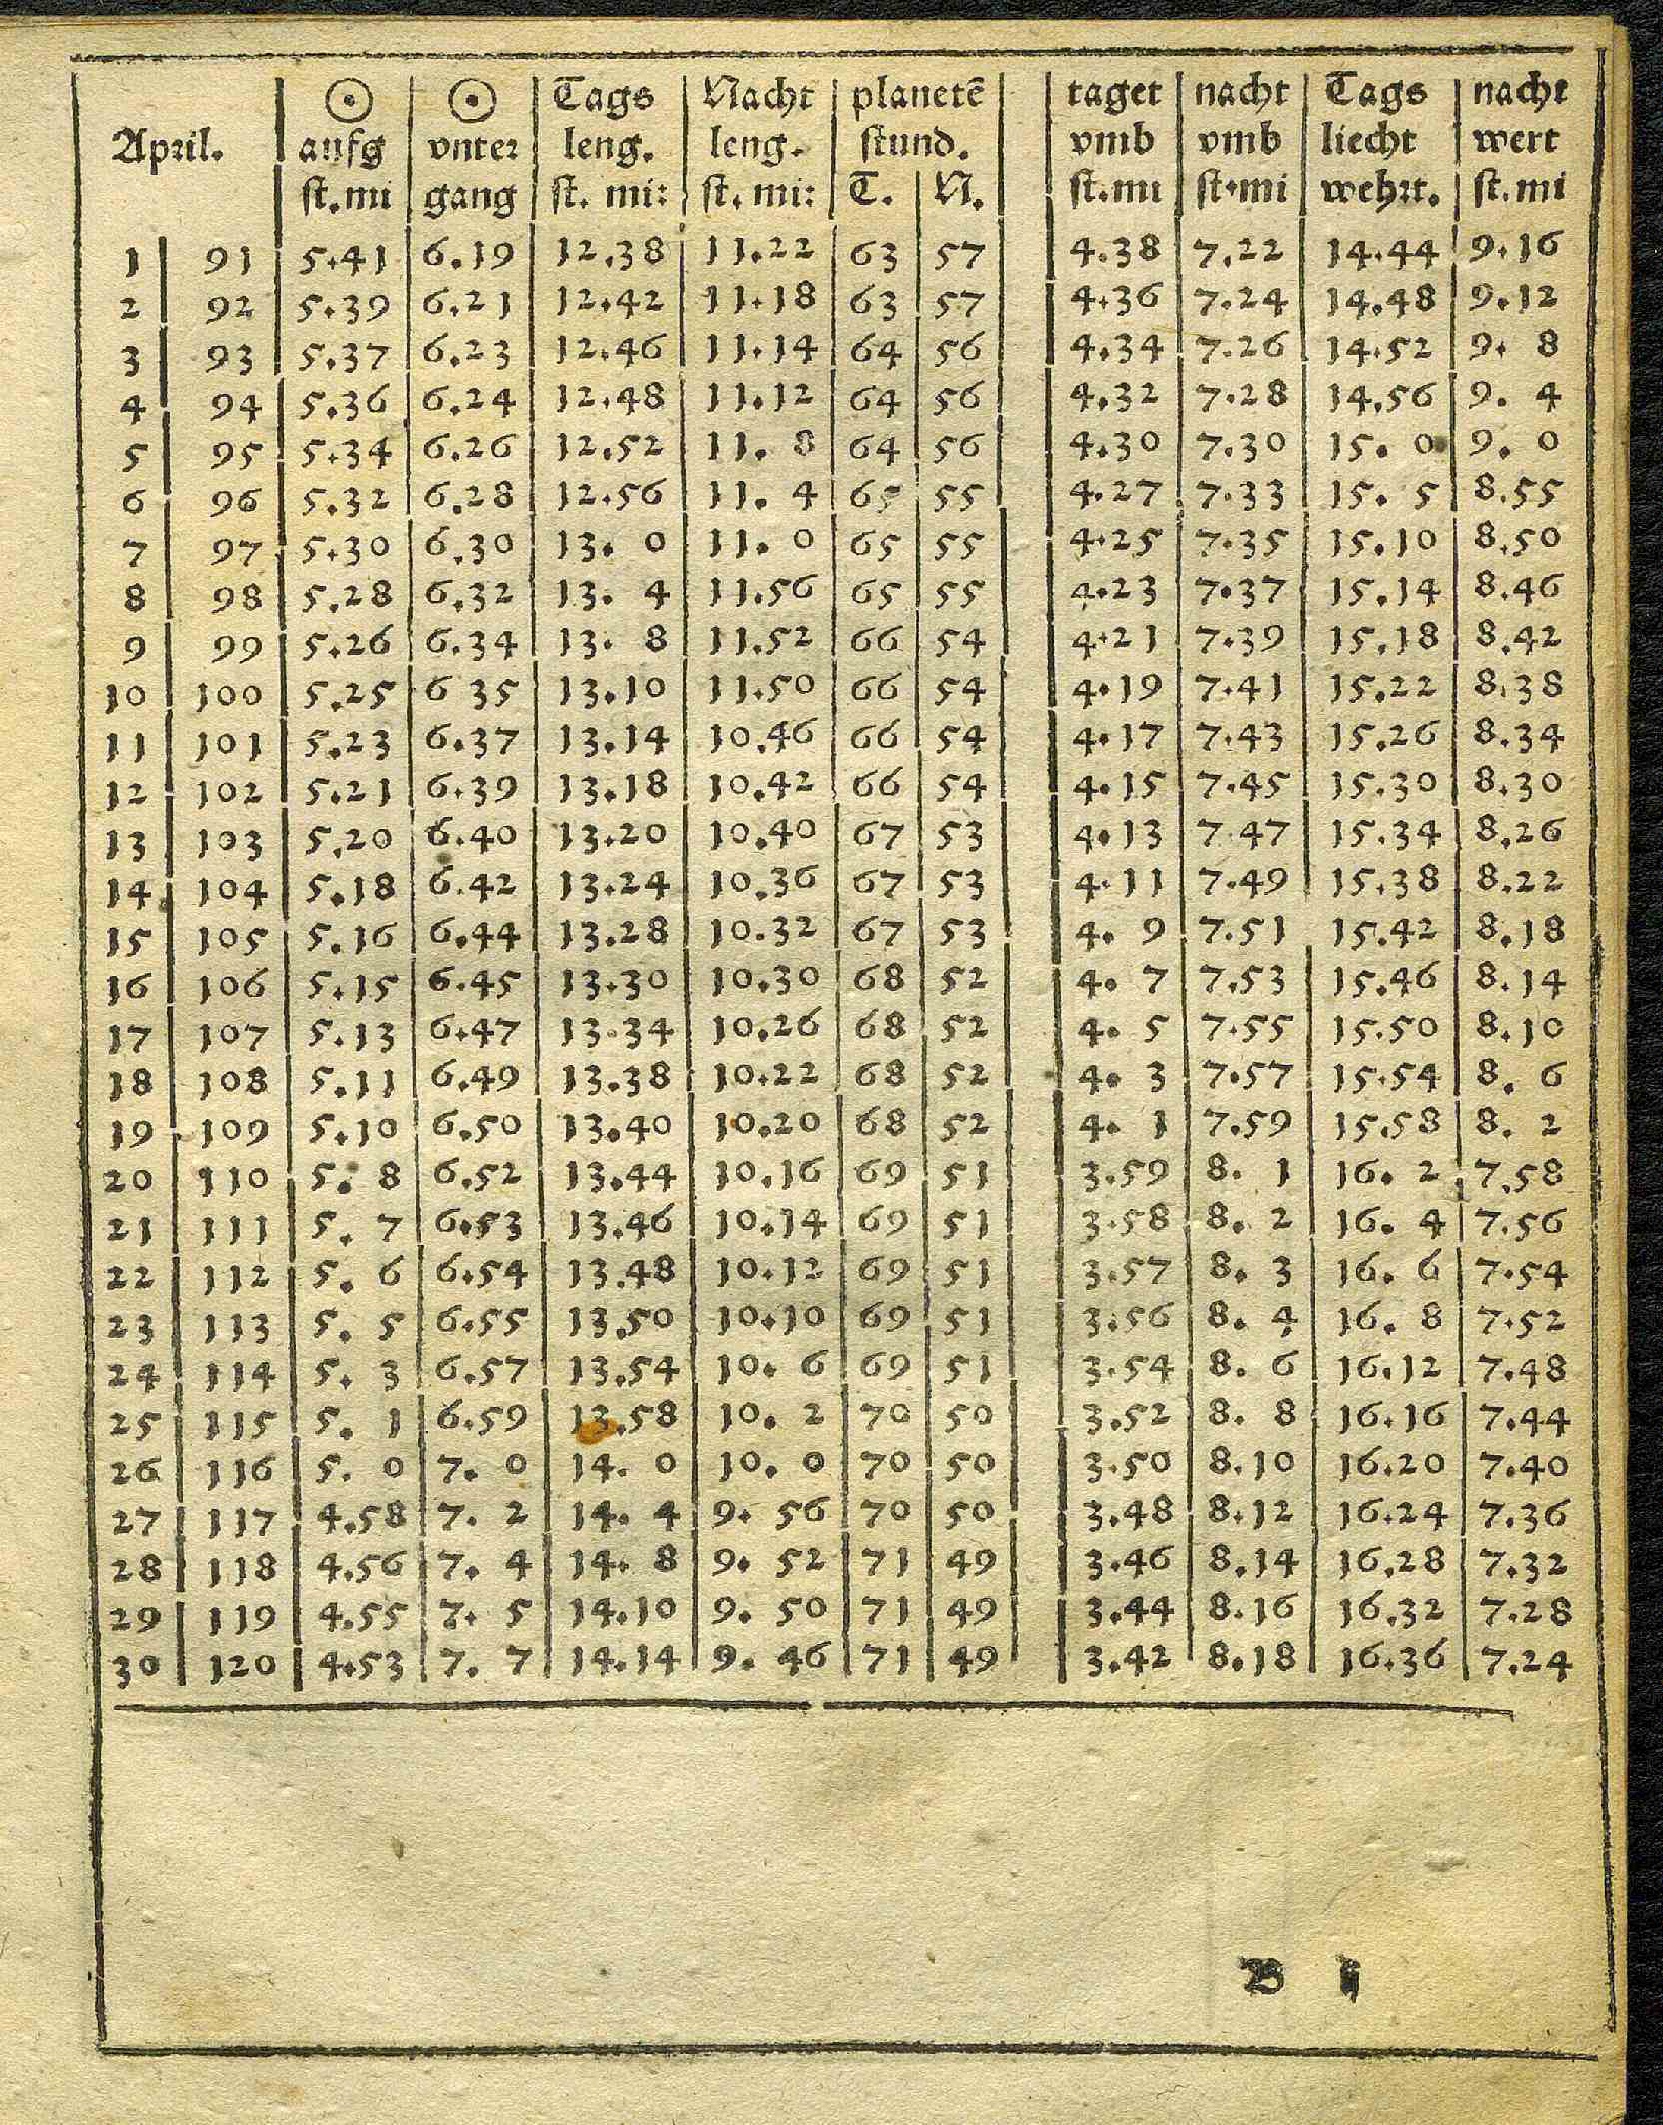 ☉ ☉ Tags Nacht planetē taget nacht Tags nacht
April. aufg vnter leng. leng. stund. vmb vmb liecht wert
st.mi gang st. mi: st. mi: T. N. st.mi st.mi wehrt. st.mi
1 91 5.41 6.19 12.38 11.22 63 57 4.38 7.22 14.44 9.16
2 92 5.39 6.21 12.42 11.18 63 57 4.36 7.24 14.48 9.12
3 93 5.37 6.23 12.46 11.14 64 56 4.34 7.26 14.52 9. 8
4 94 5.36 6.24 12.48 11.12 64 56 4.32 7.28 14.56 9. 4
5 95 5.34 6.26 12.52 11. 8 64 56 4.30 7.30 15. 0 9. 0
6 96 5.32 6.28 12.56 11. 4 65 55 4.27 7.33 15. 5 8.55
7 97 5.30 6.30 13. 0 11. 0 65 55 4.25 7.35 15.10 8.50
8 98 5.28 6.32 13. 4 11.56 65 55 4.23 7.37 15.14 8.46
9 99 5.26 6.34 13. 8 11.52 66 54 4.21 7.39 15.18 8.42
10 100 5.25 6 35 13.10 11.50 66 54 4.19 7.41 15.22 8.38
11 101 5.23 6.37 13.14 10.46 66 54 4.17 7.43 15.26 8.34
12 102 5.21 6.39 13.18 10.42 66 54 4.15 7.45 15.30 8.30
13 103 5.20 6.40 13.20 10.40 67 53 4.13 7 47 15.34 8.26
14 104 5.18 6.42 13.24 10.36 67 53 4.11 7.49 15.38 8.22
15 105 5.16 6.44 13.28 10.32 67 53 4. 9 7.51 15.42 8.18
16 106 5.15 6.45 13.30 10.30 68 52 4. 7 7.53 15.46 8.14
17 107 5.13 6.47 13.34 10.26 68 52 4. 5 7.55 15.50 8.10
18 108 5.11 6.49 13.38 10.22 68 52 4. 3 7.57 15.54 8. 6
19 109 5.10 6.50 13.40 10.20 68 52 4. 1 7.59 15.58 8. 2
20 110 5. 8 6.52 13.44 10.16 69 51 3.59 8. 1 16. 2 7.58
21 111 5. 7 6.53 13.46 10.14 69 51 3.58 8. 2 16. 4 7.56
22 112 5. 6 6.54 13.48 10.12 69 51 3.57 8. 3 16. 6 7.54
23 113 5. 5 6.55 13.50 10.10 69 51 3.56 8. 4 16. 8 7.52
24 114 5. 3 6.57 13.54 10. 6 69 51 3.54 8. 6 16.12 7.48
25 115 5. 1 6.59 13.58 10. 2 70 50 3.52 8. 8 16.16 7.44
26 116 5. 0 7. 0 14. 0 10. 0 70 50 3.50 8.10 16.20 7.40
27 117 4.58 7. 2 14. 4 9. 56 70 50 3.48 8.12 16.24 7.36
28 118 4.56 7. 4 14. 8 9. 52 71 49 3.46 8.14 16.28 7.32
29 119 4.55 7. 5 14.10 9. 50 71 49 3.44 8.16 16.32 7.28
30 120 4.53 7. 7 14.14 9. 46 71 49 3.42 8.18 16.36 7.24
B ij